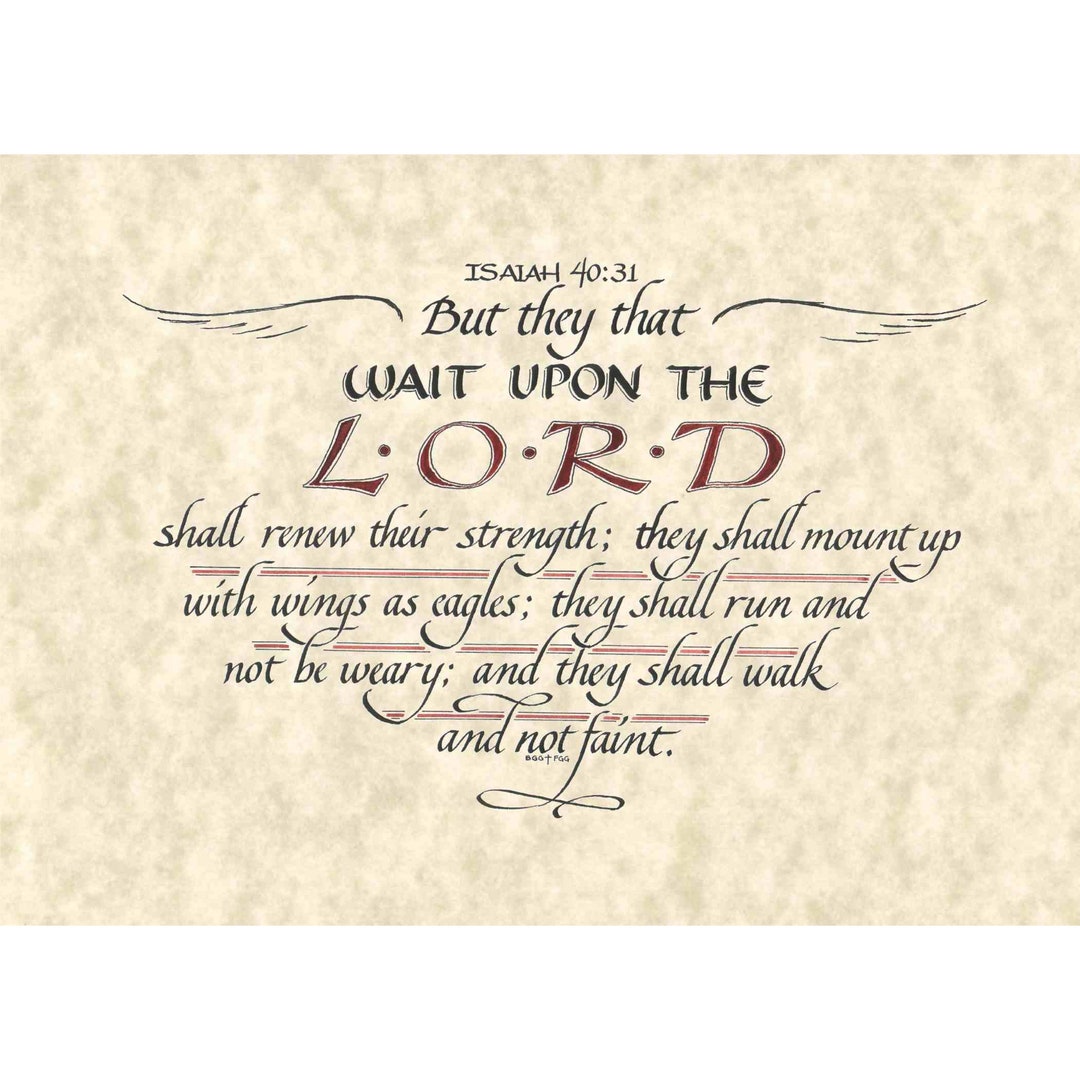 ISAIAH 40:31
But they that
WAIT UPON THE
L·O·R·D
shall renew their strength; they shall mount up
with wings as eagles; they shall run and
not be weary; and they shall walk
and not faint.
BGG†FGG